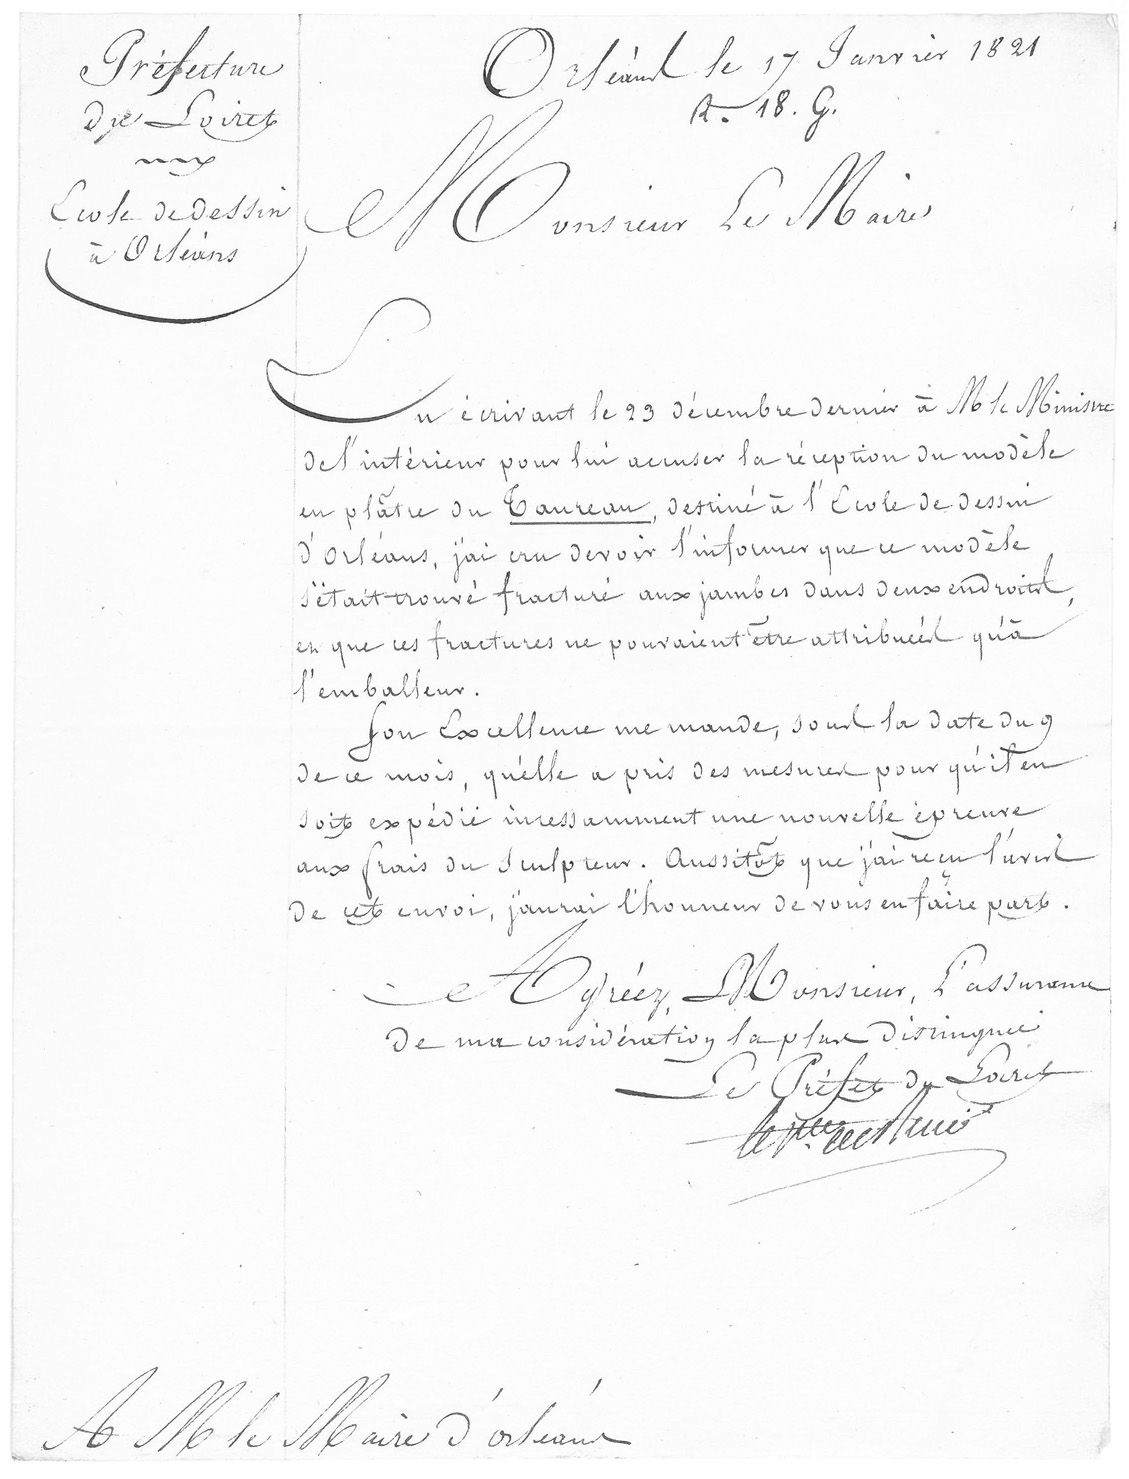 Préfecture
du Loiret
Ecole de dessin
à Orléans
Orléans le 17 Janvier 1821
R. 18. G.
Monsieur Le Maire
En écrivant le 23 décembre dernier à M le Ministre
de l'intérieur pour lui accuser la réception du modèle
en plâtre du Taureau, destiné à l'Ecole de dessin
d'Orléans, j'ai cru devoir l'informer que ce modèle
s'était trouvé fracturé aux jambes dans deux endroits,
et que ces fractures ne pouvaient être attribuées qu'à
l'emballeur.
Son Excellence me mande, sous la date du 9
de ce mois, qu'elle a pris des mesures pour qu'il en
soit expédié incessamment une nouvelle épreuve
aux frais du Sculpteur. Aussitôt que j'ai reçu l'avis
de cet envoi, j'aurai l'honneur de vous en faire part.
Agréez, Monsieur, L'assurance
de ma considération la plus distinguée
Le Préfet du Loiret
A M le Maire d'orléans